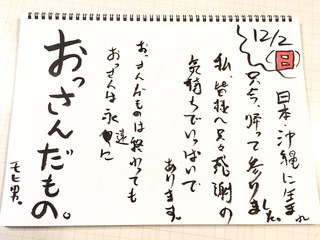 12/2
日
日本・沖縄に生まれ
只今、帰って参りました。
私、皆様へ只々感謝の
気持ちでいっぱいで
あります。
おっさんだものは終わっても
おっさんは永遠に
おっさんだもの。
モヒ男。